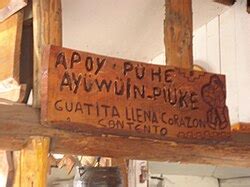 APOY·PUHE
AYÜWÜIN-PIUKE
GUATITA LLENA CORAZON
CONTENTO